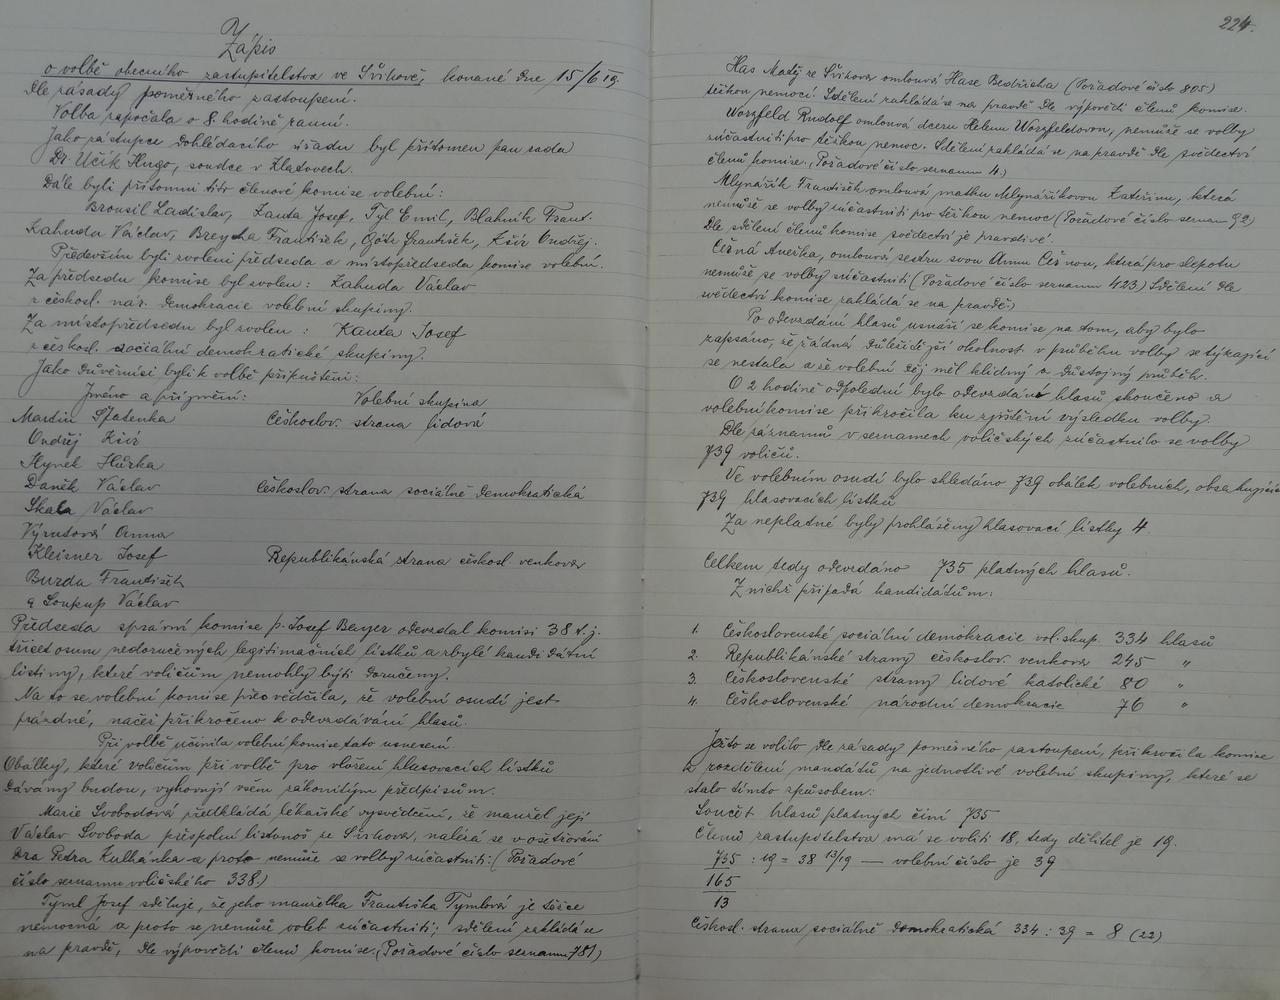 Zápis
o volbě obecního zastupitelstva ve Švihově, konané dne 15/6 19.
dle zásady poměrného zastoupení.
Volba započala o 8 hodině ranní.
Jako zástupce dohlédacího úřadu byl přítomen pan rada
Dr. Učík Hugo, soudce v Klatovech.
Dále byli přítomni tito členové komise volební:
Brousil Ladislav, Kanta Josef, Tyl Emil, Blahník Frant.
Kahuda Václav, Breycha František, Götz František, Kříž Ondřej.
Především byli zvoleni předseda a místopředseda komise volební.
Za předsedu komise byl zvolen: Kahuda Václav
z českosl. nár. demokracie volební skupiny.
Za místopředsedu byl zvolen: Kanta Josef
z českosl. sociální demokratické skupiny.
Jako důvěrníci byli k volbě připuštěni:
Jméno a příjmení: Volební skupina
Martin Špatenka Českoslov. strana lidová
Ondřej Kříž
Hynek Hůrka
Daněk Václav Českoslov. strana sociálně demokratická
Skala Václav
Výrutová Anna
Kleisner Josef Republikánská strana českosl. venkova
Burda František
a Soukup Václav
Předseda správní komise p. Josef Bayer odevzdal komisi 38 t.j.
třicet osum nedoručených legitimačních lístků a zbylé kandidátní
listiny, které voličům nemohly býti doručeny.
Na to se volební komise přesvědčila, že volební osudí jest
prázdné, načež přikročeno k odevzdávání hlasů.
Při volbě učinila volební komise tato usnesení.
Obálky, které voličům při volbě pro vložení hlasovacích lístků
dávány budou, vyhovují všem zákonitým předpisům.
Marie Svobodová předkládá lékařské vysvědčení, že manžel její
Václav Svoboda přespolní listonoš ze Švihova, nalézá se v ošetřování
Dra Petra Kulhánka a proto nemůže se volby súčastniti: (Pořadové
číslo seznamu voličského 338.)
Tyml Josef sděluje, že jeho manželka Františka Tymlová je těžce
nemocná a proto se nemůže voleb súčastniti; sdělení zakládá se
na pravdě, dle výpovědi členů komise. (Pořadové číslo seznamu 781)
224.
Has Matěj ze Švihova omlouvá Hase Bedřicha (Pořadové číslo 805)
těžkou nemocí. Sdělení zakládá se na pravdě dle výpovědi členů komise.
Worzfeld Rudolf omlouvá dceru Helenu Worzfeldovou, nemůže se volby
súčastniti pro těžkou nemoc. Sdělení zakládá se na pravdě dle svědectví
členů komise. (Pořadové číslo seznamu 4.)
Mlynářík František omlouvá matku Mlynáříkovou Kateřinu, která
nemůže se volby súčastniti pro těžkou nemoc (Pořadové číslo seznamu 92)
dle sdělení členů komise svědectví je pravdivé.
Češná Anežka, omlouvá sestru svou Annu Češnou, která pro slepotu
nemůže se volby súčastniti (Pořadové číslo seznamu 423) Sdělení dle
svědectví komise zakládá se na pravdě.)
Po odevzdání hlasů usnáší se komise na tom, aby bylo
zapsáno, že žádná důležitější okolnost v průběhu volby se týkající
se nestala a že volební děj měl klidný a důstojný průběh.
O 2 hodině odpolední bylo odevzdání hlasů skončeno a
volební komise přikročila ku zjištění výsledku volby.
Dle záznamů v seznamech voličských súčastnilo se volby
739 voličů.
Ve volebním osudí bylo shledáno 739 obálek volebních, obsahujících
739 hlasovacích lístků
Za neplatné byly prohlášeny hlasovací lístky 4.
Celkem tedy odevzdáno 735 platných hlasů.
Z nichž připadá kandidátům:
1. Československé sociální demokracie vol. skup. 334 hlasů
2. Republikánské strany českoslov. venkova 245 "
3. Československé strany lidové katolické 80 "
4. Československé národní demokracie 76 "
Ježto se volilo dle zásady poměrného zastoupení, přikročila komise
k rozdělení mandátů na jednotlivé volební skupiny, které se
stalo tímto způsobem:
Součet hlasů platných činí 735
Členů zastupitelstva má se voliti 18, tedy dělitel je 19.
735 : 19 = 38 13/19 — volební číslo je 39
165
13
Českosl. strana sociálně demokratická 334 : 39 = 8 (22)